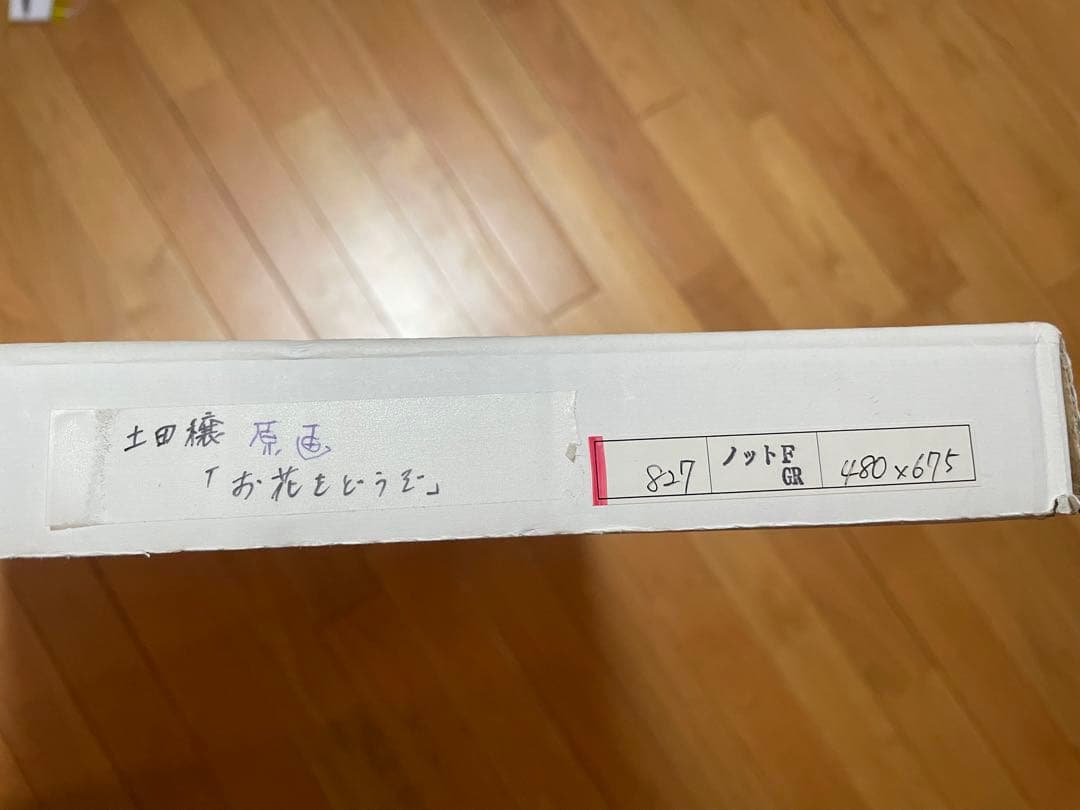 土田穣 原画
「お花をどうぞ」
827 ノットF GR 480×675